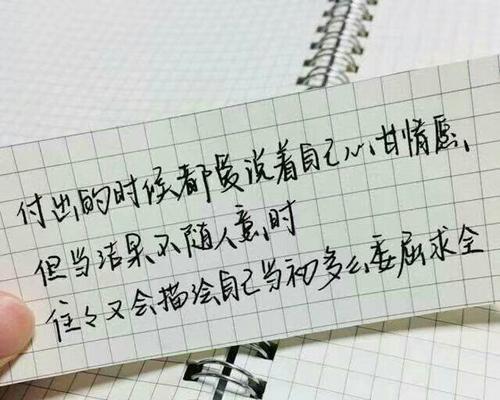 付出的时候都爱说着自己心甘情愿、
但当结果不随人意时
往々又会描绘自己当初多么委屈求全